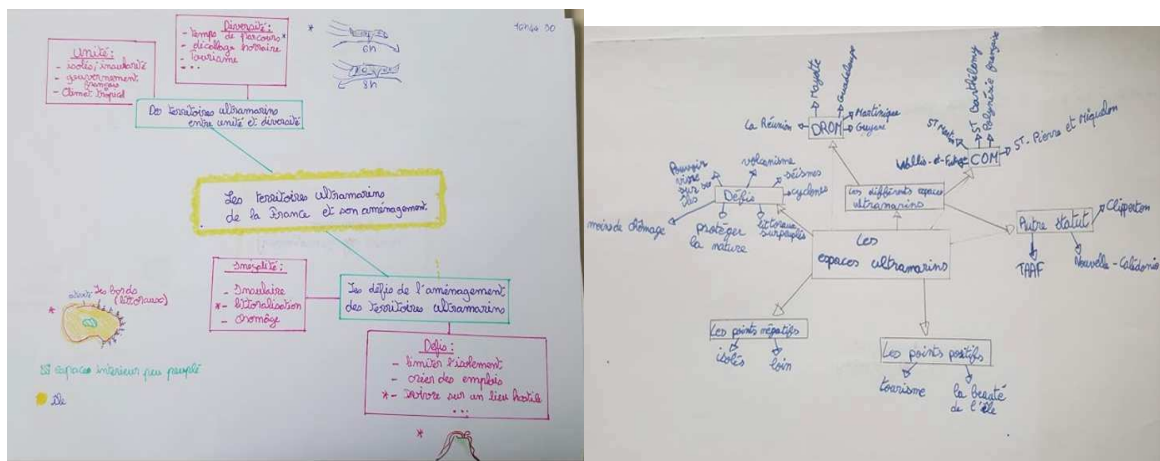 Unité :
- isolés, insularité
- gouvernement
français
- Climat tropical
Diversité :
- temps de parcours *
- décallage horraire
- Tourisme
- ...
*
6h
8h
Des territoires ultramarins
entre unité et diversité
Les territoires ultramarins
de la France et son aménagement
Inégalité :
- Insulaire
* - littoralisation
- chomâge
Les défis de l'aménagement
des territoires ultramarins
Défis :
- limiter l'isolement
- créer des emplois
* - vivre sur un lieu hostile
...
*
* Les bords
(littoraux)
espaces interieur peu peuplé
île
Mayotte
Guadeloupe
La Réunion
DROM
Martinique
Guyane
St Martin
St Barthélemy
Polynésie française
Wallis-et-Futuna
COM
St-Pierre et Miquelon
Pouvoir
vivre
sur ses
volcanisme
séismes
cyclones
Défis
moins de chômage
protéger
la nature
littoraux
surpeuplés
Les différents espaces
ultramarins
Autre statut
Clipperton
TAAF
Nouvelle-Calédonie
Les
espaces ultramarins
Les points négatifs
isolés
loin
Les points positifs
tourisme
la beauté
de l'île